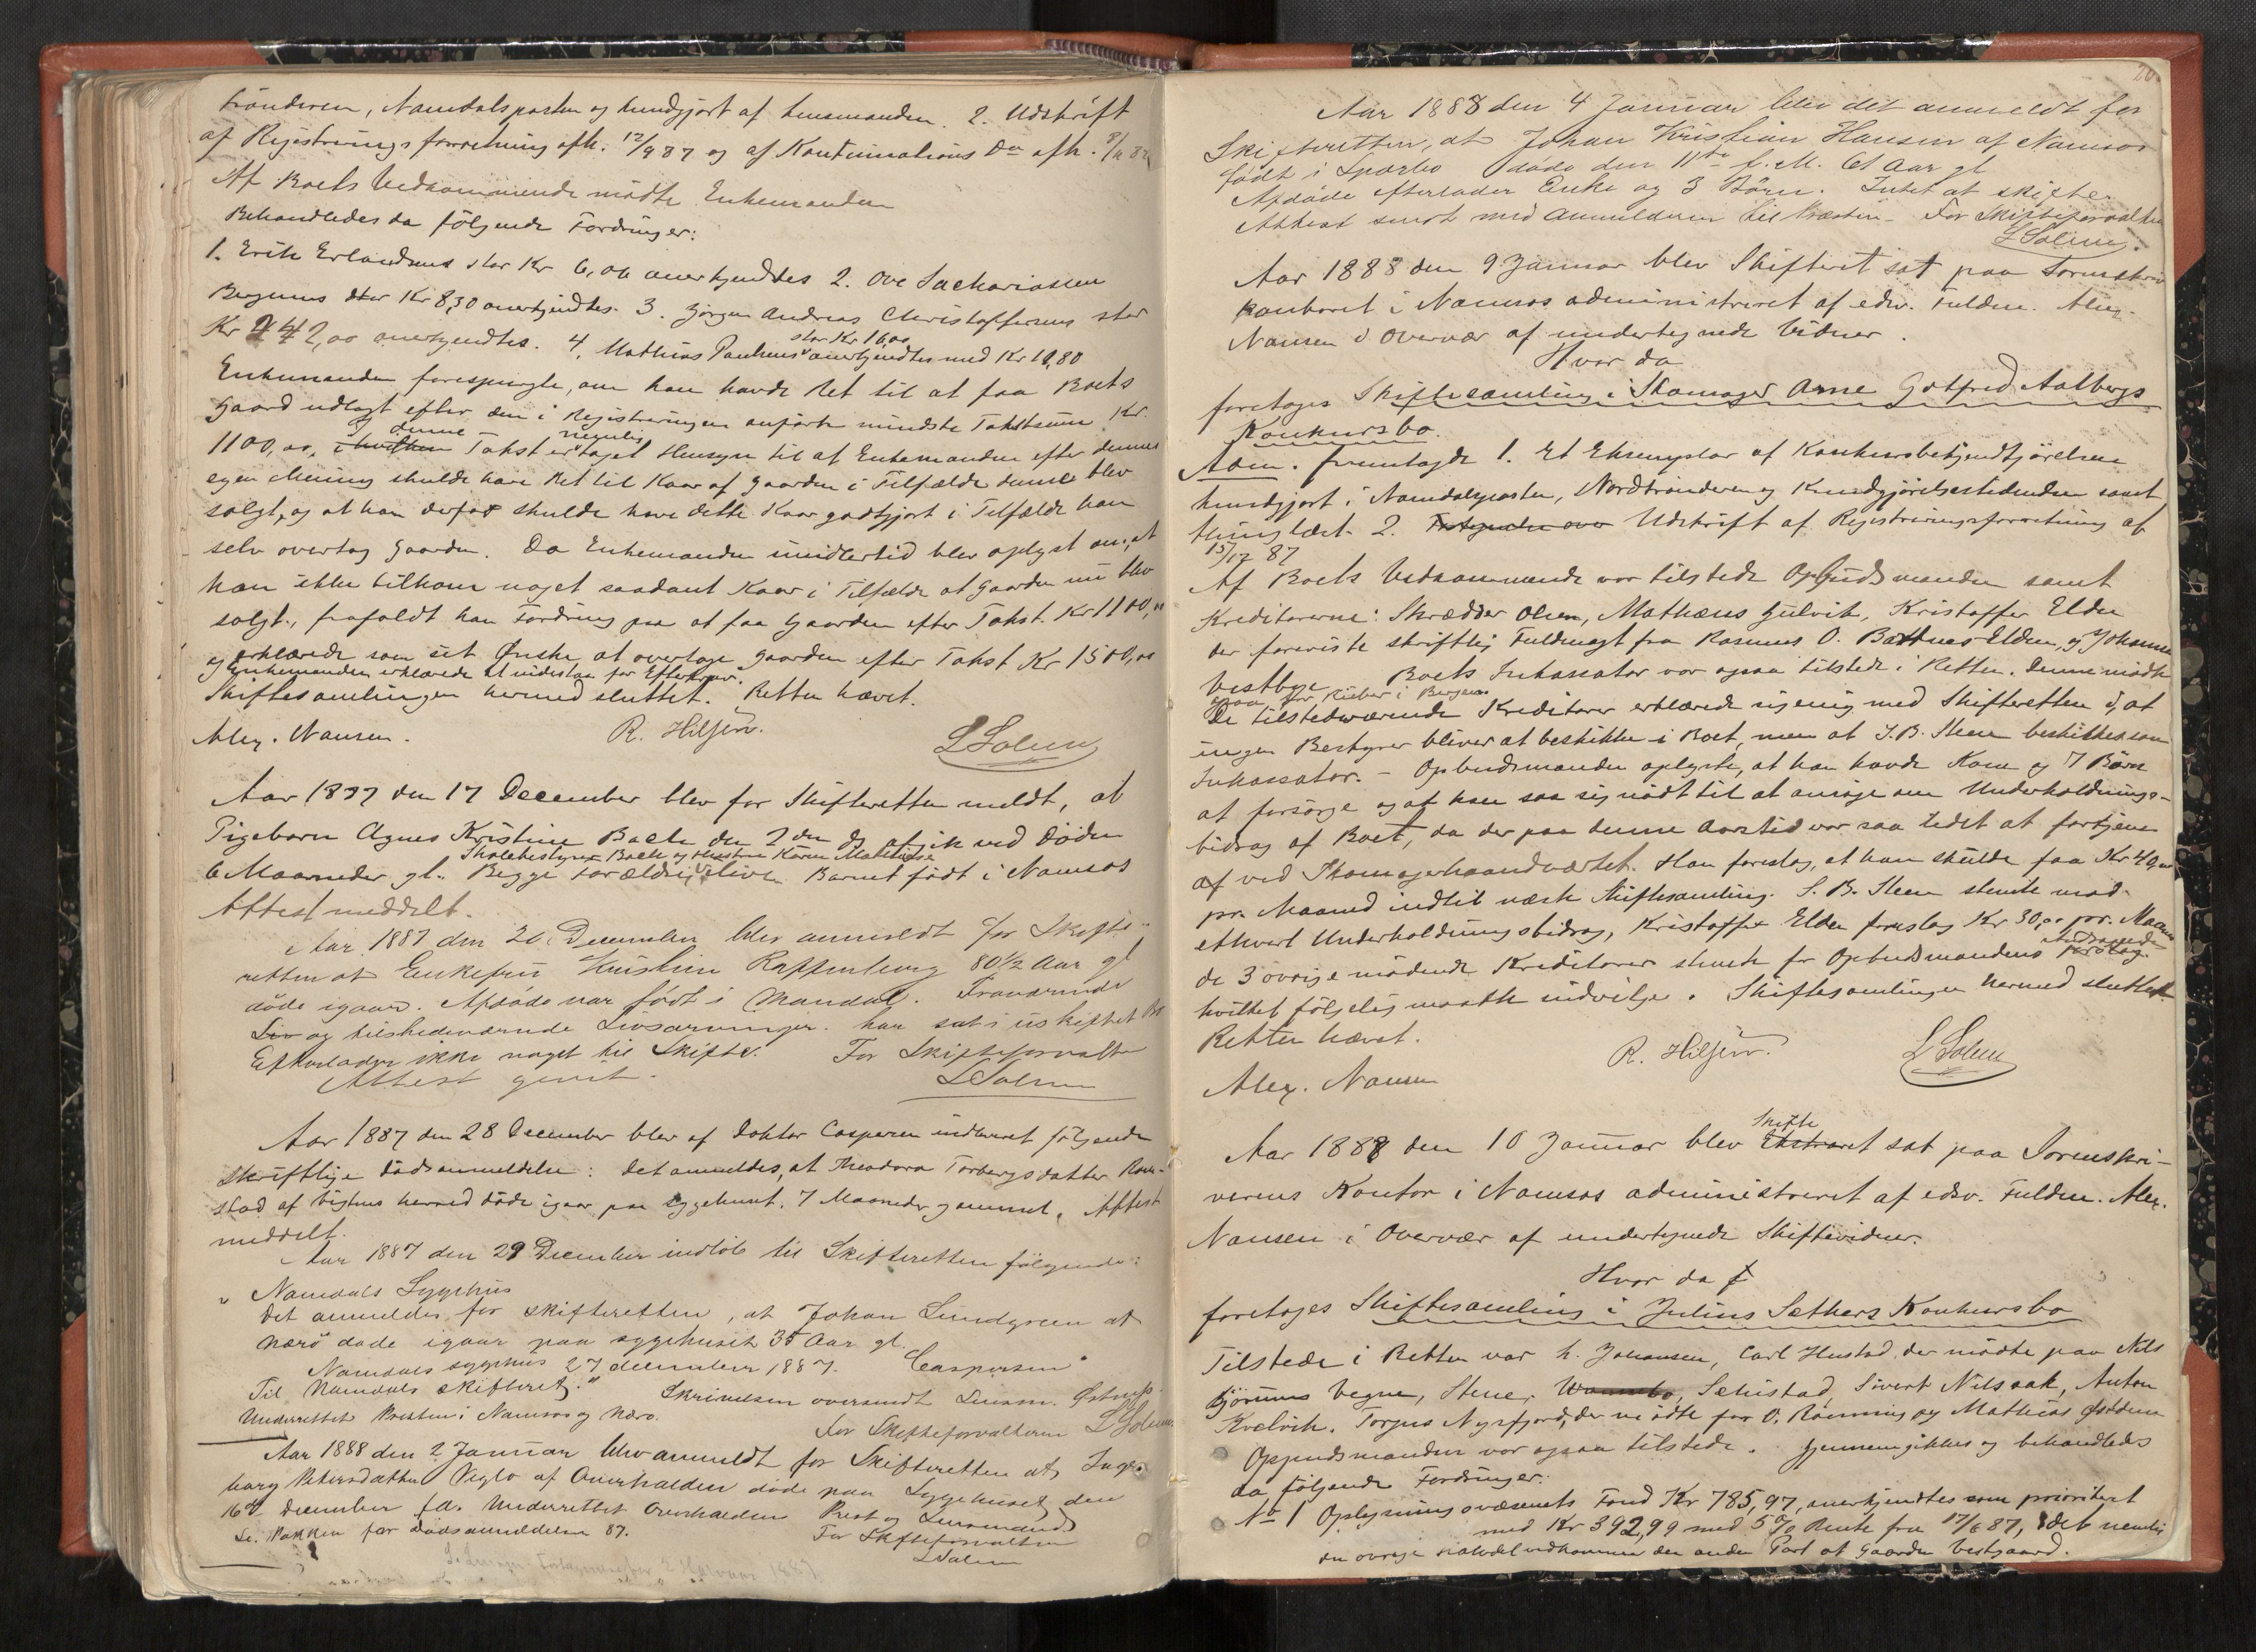 trönderen, Namdalsposten og kundgjort af Lensmanden. 2. Udskrift
af Registreringsforretning afh. 12/9 87 og af Kontinuations Do afh.
Af Boets Vedkommende mödte Enkemanden
Behandledes da fölgende Fordringer:
1. Erik Erlandsens stor Kr 6,06 anerkjendtes 2. Ove Sachariassen
Bergsnes stor Kr 8,30 anerkjendtes. 3. Jörgen Andreas Christoffersens stor
Kr 242,00 anerkjendtes. 4. Mathias Paulsens stor Kr 16,00 anerkjendtes med Kr 10,80
Enkemanden forespurgte, om han havde Ret til at faa Boets
Gaard udlagt efter den i Registreringen anförte mindste Takstsum Kr.
1100,00, i hvilken og denne Takst er nemlig taget Hensyn til at Enkemanden efter dennes
egen Mening skulde have Ret til Kaar af Gaarden i Tilfælde denne blev
solgt, og at han derfor skulde have dette Kaar godtgjort i Tilfælde han
selv overtog Gaarden. Da Enkemanden imidlertid blev oplyst om, at
han ikke tilkom noget saadant Kaar i Tilfælde at Gaarden nu blev
solgt, frafaldt han Fordring paa at faa Gaarden efter Takst Kr 1100,00
og erklærede som sit Önske at overtage Gaarden efter Takst Kr 1500,00
Enkemanden erklærede at indestaa for Efterkrav.
Skiftesamlingen hermed sluttet. Retten hævet.
Alex. Nansen. R. Hiljen. L Solem
Aar 1887 den 17 December blev for Skifteretten meldt, at
Pigebarn Agnes Kristine Bach den 2den ds afgik ved Döden
6 Maaneder gl. Begge Forældre, Skolebestyrer Bach og Hustru Karen Mathisse ilive. Barnet födt i Namsos
Attest meddelt.
Aar 1887 den 20 December blev anmeldt for Skifte-
retten at Enkefru Kristine Roffenberg 80 1/2 Aar gl
döde igaar. Afdöde var födt i Mandal. Fraværende
Liv og tilstedeværende Livsarvinger. har sat i uskiftet Bo
Efterlader ikke noget til Skifte. For Skifteforvalte
Attest givet. L Solem
Aar 1887 den 28 December blev af Doktor Caspersen indleveret fölgende
skriftlige Dödsanmeldelse: Det anmeldes, at Theodora Torbergsdatter
stad af Vigtens herred döde igaar paa Sygehuset. 7 Maaneder gammel. Attest
meddelt.
Aar 1887 den 29 December indlöb til Skifteretten fölgende:
" Namdals Sygehus
Det anmeldes for skifteretten, at Johan Lundgreen af
Nærö døde igaar paa sygehuset 35 Aar gl.
Namdals sygehus 27 december 1887. Caspersen
Til Namdals skifteret." Skrivelsen oversendt Lensm.
Underrettet Presten i Namsos og Nærö.
For Skifteforvalteren L Solem
Aar 1888 den 2 Januar blev anmeldt for Skifteretten at Inge-
borg Petersdatter Viglo af Overhalden döde paa Sygehuset den
16de December f.A. Underrettet Overhaldens Prest og Lensmand
Se. Pakken for Dödsanmeldelser 87. For Skifteforvalteren
L Solem
20
Aar 1888 den 4 Januar blev det anmeldt for
Skifteretten, at Johan Kristian Hansen af Namsos
födt i Sparbo döde den 11te f.M. 61 Aar gl
Afdöde efterlader Enke og 3 Börn. Intet at skifte.
Attest sendt med Anmelderen til Præsten. For Skifteforvalteren
L Solem.
Aar 1888 den 9 Januar blev Skifteret sat paa Sorenskriv
kontoret i Namsos administreret af edsv. Fuldm. Alex.
Nansen i Overvær af undertegnede Vidner.
Hvor da
foretoges Skiftesamling i Skomager Arne Gotfred Aalbergs
Konkursbo.
Adm. fremlagde 1. Et Eksemplar af Konkursbekjendtgjörelsen
kundgjort i Namdalsposten, Nordtrönderen og Kundgjörelsestidenden samt
thinglæst. 2. Udskrift af Registreringsforretning af
15/12 87
Af Boets Vedkommende var tilstede Opbudsmanden samt
Kreditorerne: Skrædder Olsen, Mathæus Gulvik, Kristoffer Elden
der foreviste skriftlig Fuldmagt fra Rasmus O. Elden, og Johannes
Vestbye Boets Inkassator var ogsaa tilstede i Retten. Denne mödte
ogsaa for Kieber i Bergen
De tilstedeværende Kreditorer erklærede sig enig med Skifteretten i, at
ingen Bestyrer bliver at beskikke i Boet, men at S.B. Steen beskikkes som
Inkassator. – Opbudsmanden oplyste, at han havde Kone og 7 Börn
at forsörge og at han saa sig nödt til at ansöge om Underholdnings-
bidrag af Boet, da der paa denne Aarstid var saa lidet at fortjene
af ved Skomagerhaandværket. Han foreslog, at han skulde faa Kr 40,00
pr. Maaned indtil næste Skiftesamling. S.B. Steen stemte mod
ethvert Underholdningsbidrag, Kristoffer Elden foreslog Kr 30,00 pr. Maaned
de 3 övrige mödende Kreditorer stemte for Opbudsmandens Andragende
hvilket fölgelig maatte indvilges. Skiftesamlingen hermed sluttet.
Retten hævet. R. Hiljen. L Solem
Alex. Nansen
Aar 1888 den 10 Januar blev Ekstraret Skifte sat paa Sorenskri-
verens Kontor i Namsos administreret af edsv. Fuldm. Alex.
Nansen i Overvær af undertegnede Skiftevidner.
Hvor da f
foretoges Skiftesamling i Julius Sethers Konkursbo
Tilstede i Retten var h. Johansen, Carl Hustad, der mödte paa Nils
Vegne, Stene, Sehistad, Sivert Nilssak, Anton
Kvelvik. Torgus Nyrfjord, der mödte for O. Rönning og Mathias
Oppbudsmanden var ogsaa tilstede. Gjennemgikkes og behandledes
da fölgende Fordringer:
No 1 Oplysningsvæsenets Fond Kr 785,97, anerkjendtes som prioritert
med Kr 392,99 med 5% Rente fra 17/6 87, idet nemlig
den övrige vedkommer den anden Part af Gaarden Vestgaard.